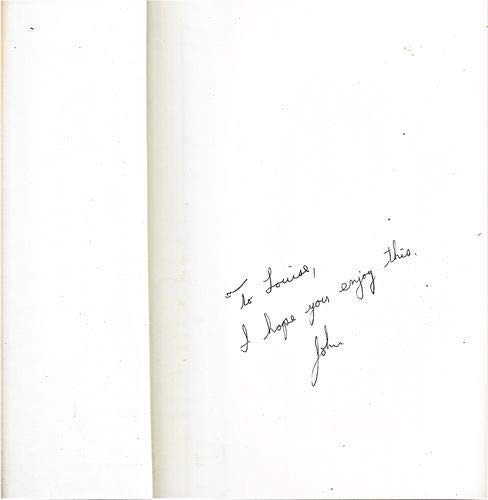 To Louise,
I hope you enjoy this.
John